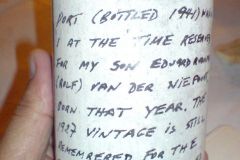 PORT (BOTTLED 1941)
I AT THE TIME
FOR MY SON
(ROLF) VAN DER
BORN THAT YEAR. THE
1927 VINTAGE IS STILL
REMEMBERED FOR THE